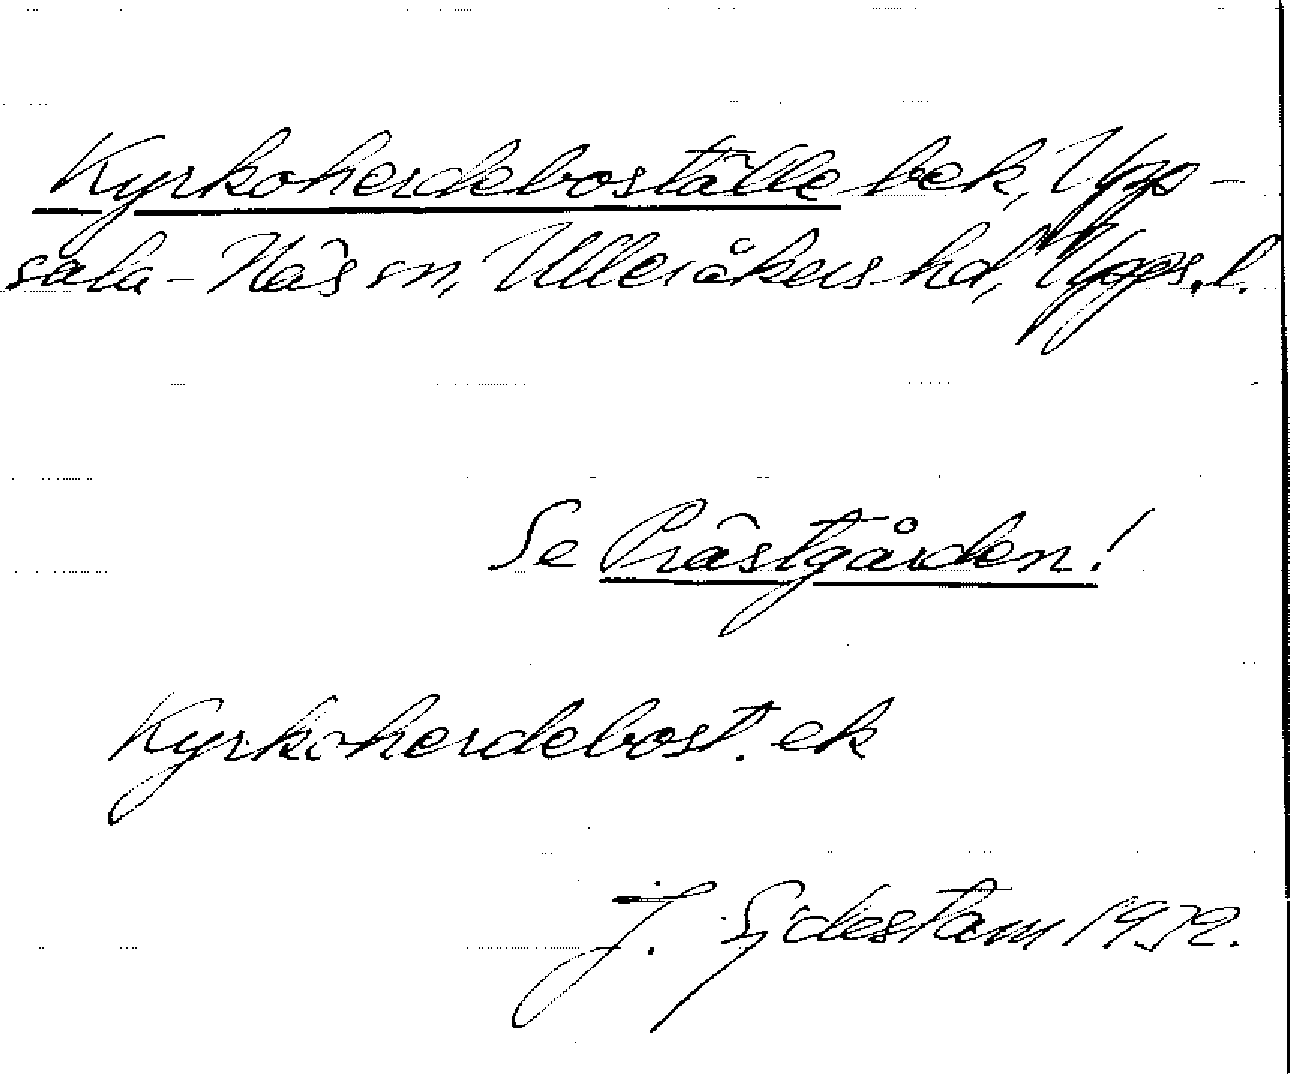 Kyrkoherdeboställe bek, Upp-
sala-Näs sn, Ulleråkers hd, Upps. l.
Se Prästgården!
Kyrkoherdebost. ek
J. Sjdestam 1932.